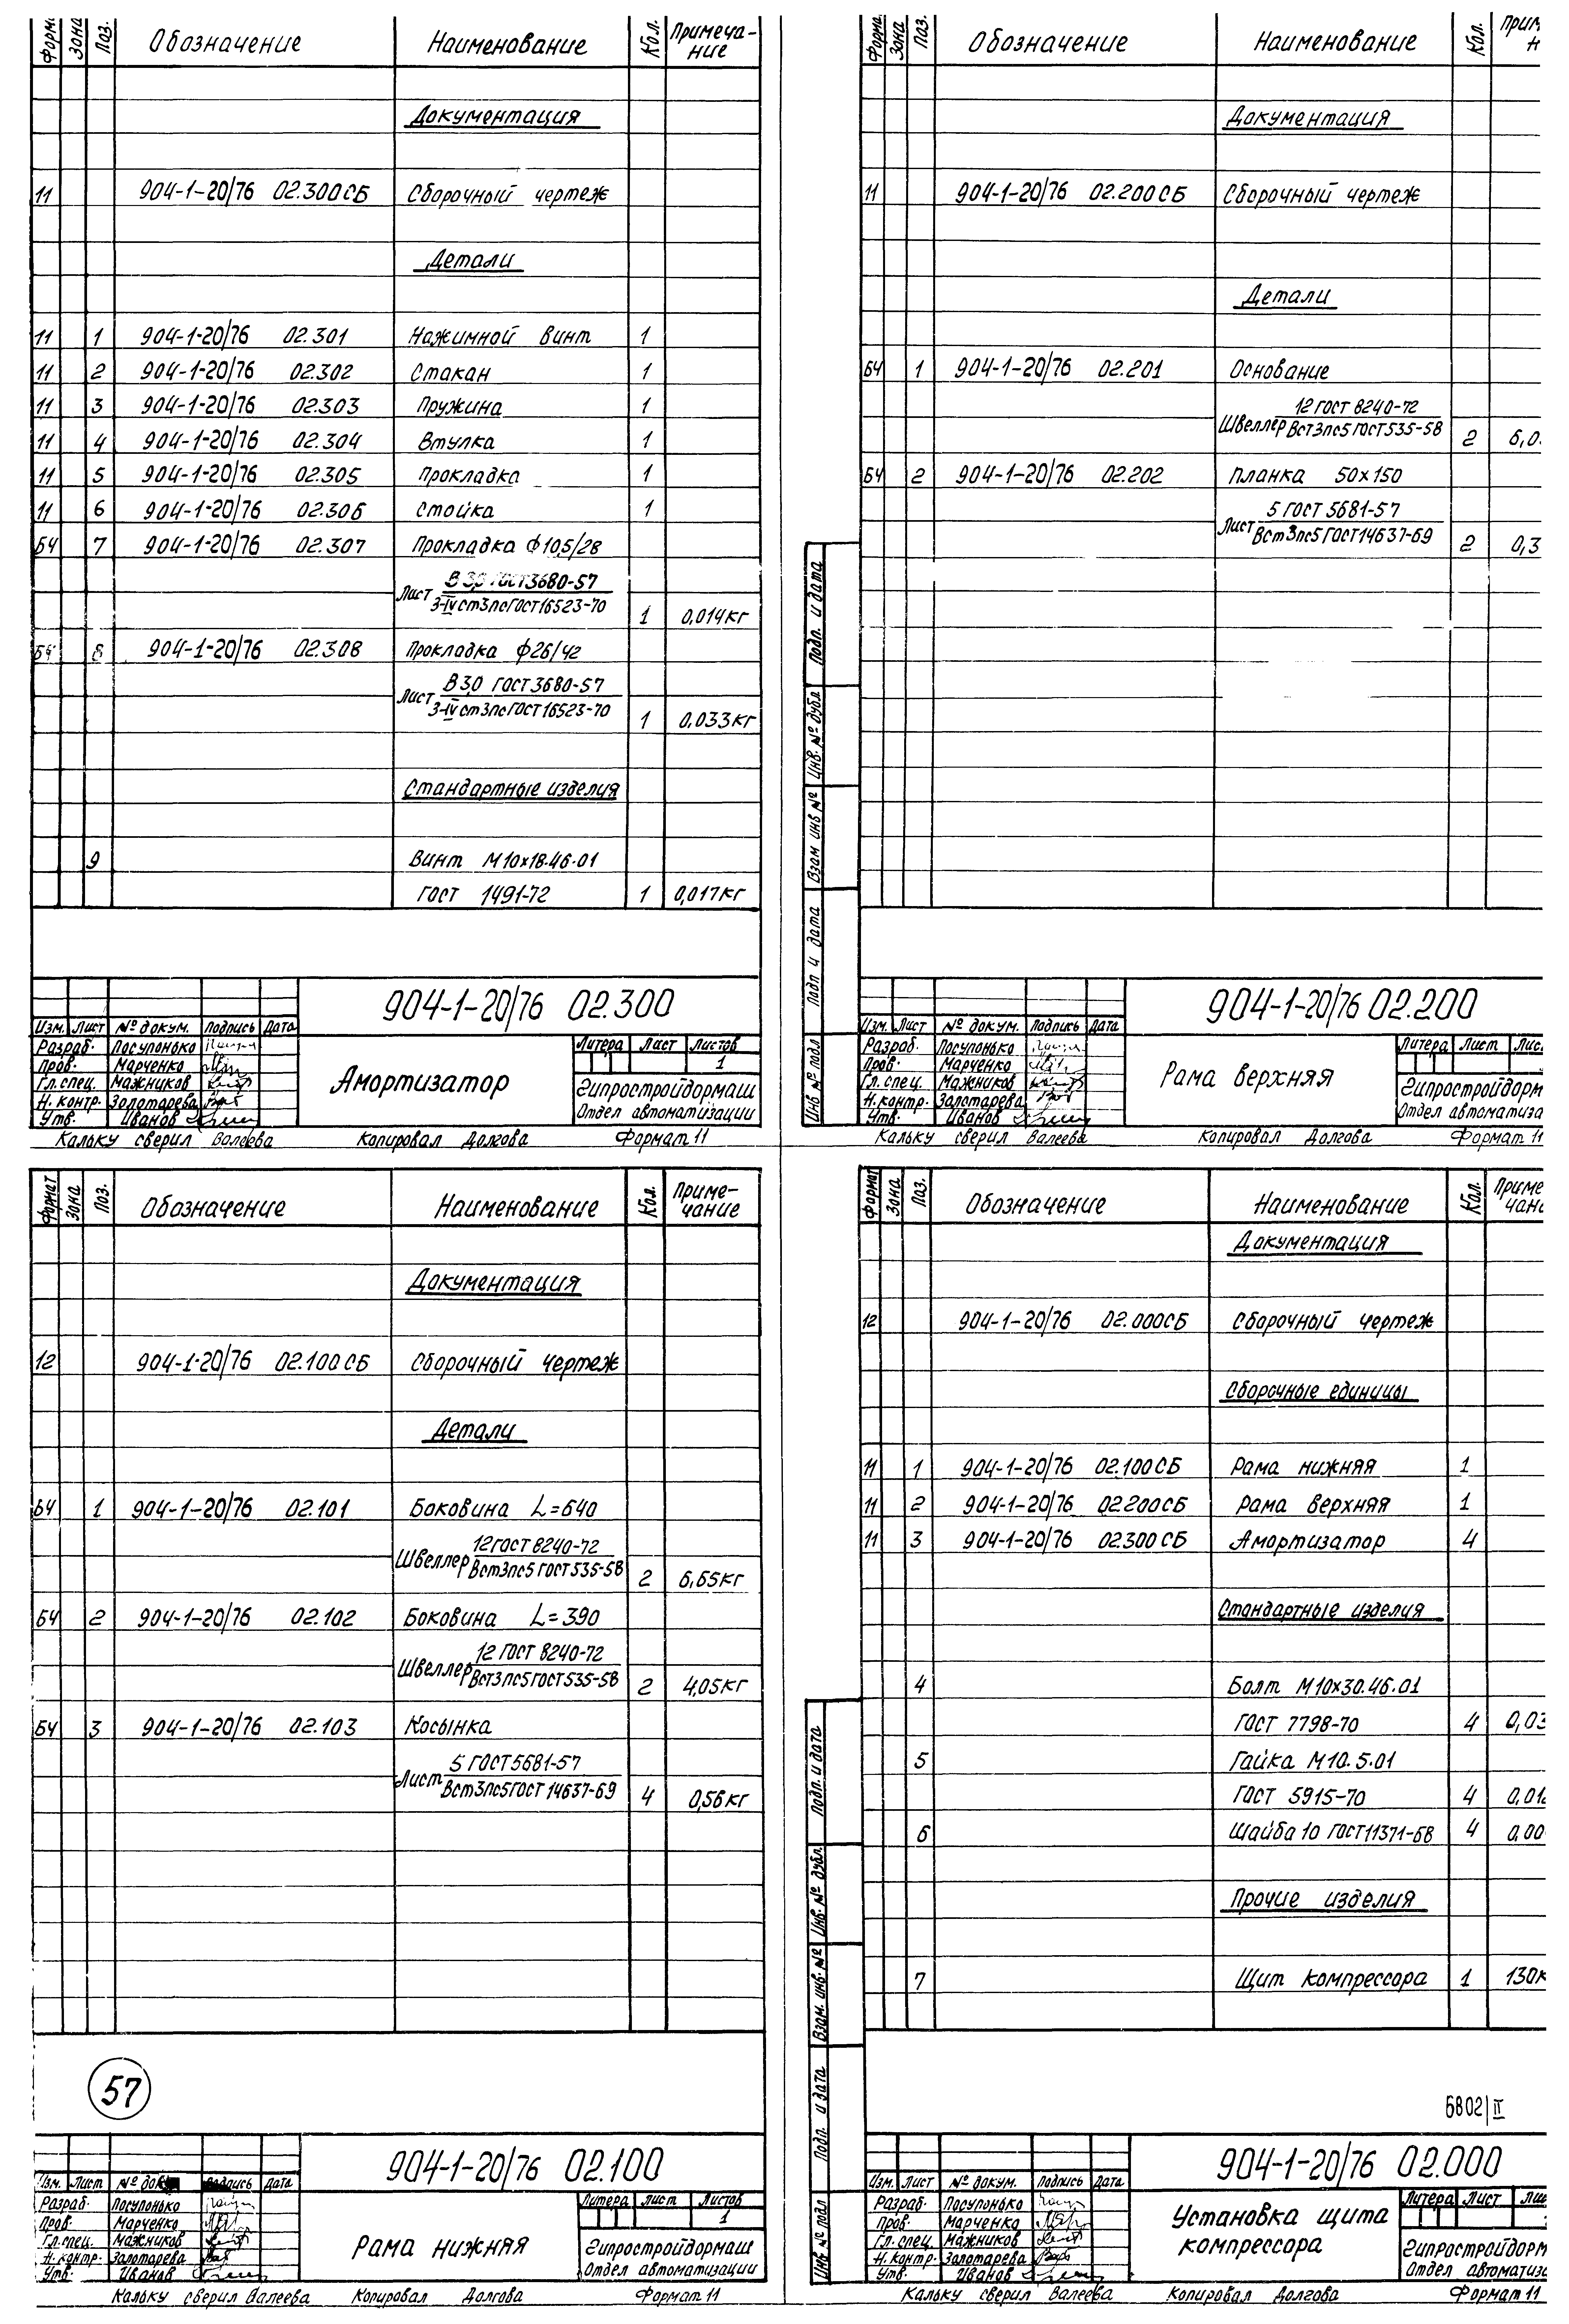 Форм. Зона Поз. Обозначение Наименование Кол. Примеча-
ние
Документация
11 904-1-20/76 02.300СБ Сборочный чертеж
Детали
11 1 904-1-20/76 02.301 Нажимной винт 1
11 2 904-1-20/76 02.302 Стакан 1
11 3 904-1-20/76 02.303 Пружина 1
11 4 904-1-20/76 02.304 Втулка 1
11 5 904-1-20/76 02.305 Прокладка 1
11 6 904-1-20/76 02.306 Стойка 1
БЧ 7 904-1-20/76 02.307 Прокладка ф10,5/28
В 3,0 ГОСТ 3680-57
Лист 3-IV ст3пс ГОСТ 16523-70 1 0,014кг
БЧ 8 904-1-20/76 02.308 Прокладка ф26/42
В 3,0 ГОСТ 3680-57
Лист 3-IV ст3пс ГОСТ 16523-70 1 0,033кг
Стандартные изделия
9 Винт М10х18.46.01
ГОСТ 1491-72 1 0,017кг
904-1-20/76 02.300
Изм. Лист № докум. Подпись Дата
Разраб. Посупонько
Пров. Марченко
Гл.спец. Мажников
Н.контр. Золотарева
Утв. Иванов
Амортизатор
Литера Лист Листов
1
Гипростройдормаш
Отдел автоматизации
Кальку сверил Валеева Копировал Долгова Формат 11
Форма Зона Поз. Обозначение Наименование Кол. Прим
н
Документация
11 904-1-20/76 02.200СБ Сборочный чертеж
Детали
БЧ 1 904-1-20/76 02.201 Основание
12 ГОСТ 8240-72
Швеллер Вст3пс5 ГОСТ 535-58 2 6,0
БЧ 2 904-1-20/76 02.202 Планка 50х150
5 ГОСТ 5681-57
Лист Вст3пс5 ГОСТ 14637-69 2 0,3
Подп. и дата
Инв. № дубл.
Взам инв №
Подп и дата
Инв № подл
904-1-20/76 02.200
Изм. Лист № докум. Подпись Дата
Разраб. Посупонько
Пров. Марченко
Гл.спец. Мажников
Н.контр. Золотарева
Утв. Иванов
Рама верхняя
Литера Лист Лис
Гипростройдорм
Отдел автоматиза
Кальку сверил Валеева Копировал Долгова Формат 11
Формат Зона Поз. Обозначение Наименование Кол. Приме-
чание
Документация
12 904-1-20/76 02.100СБ Сборочный чертеж
Детали
БЧ 1 904-1-20/76 02.101 Боковина L=640
12 ГОСТ 8240-72
Швеллер Вст3пс5 ГОСТ 535-58 2 6,65кг
БЧ 2 904-1-20/76 02.102 Боковина L=390
12 ГОСТ 8240-72
Швеллер Вст3пс5 ГОСТ 535-58 2 4,05кг
БЧ 3 904-1-20/76 02.103 Косынка
5 ГОСТ 5681-57
Лист Вст3пс5 ГОСТ 14637-69 4 0,56кг
57
904-1-20/76 02.100
Изм. Лист № док Подпись Дата
Разраб. Посупонько
Пров. Марченко
Гл.спец. Мажников
Н.контр. Золотарева
Утв. Иванов
Рама нижняя
Литера Лист Листов
1
Гипростройдормаш
Отдел автоматизации
Кальку сверил Валеева Копировал Долгова Формат 11
Формат Зона Поз. Обозначение Наименование Кол. Приме
чан
Документация
12 904-1-20/76 02.000СБ Сборочный чертеж
Сборочные единицы
11 1 904-1-20/76 02.100СБ Рама нижняя 1
11 2 904-1-20/76 02.200СБ Рама верхняя 1
11 3 904-1-20/76 02.300СБ Амортизатор 4
Стандартные изделия
4 Болт М10х30.46.01
ГОСТ 7798-70 4 0,03
5 Гайка М10.5.01
ГОСТ 5915-70 4 0,01
6 Шайба 10 ГОСТ 11371-68 4 0,00
Прочие изделия
7 Щит компрессора 1 130к
Подп. и дата
Инв. № дубл.
Взам. инв. №
Подп. и дата
Инв № подл
6802/II
904-1-20/76 02.000
Изм. Лист № докум. Подпись Дата
Разраб. Посупонько
Пров. Марченко
Гл.спец. Мажников
Н.контр. Золотарева
Утв. Иванов
Установка щита
компрессора
Литера Лист
Гипростройдорм
Отдел автоматиза
Кальку сверил Валеева Копировал Долгова Формат 11